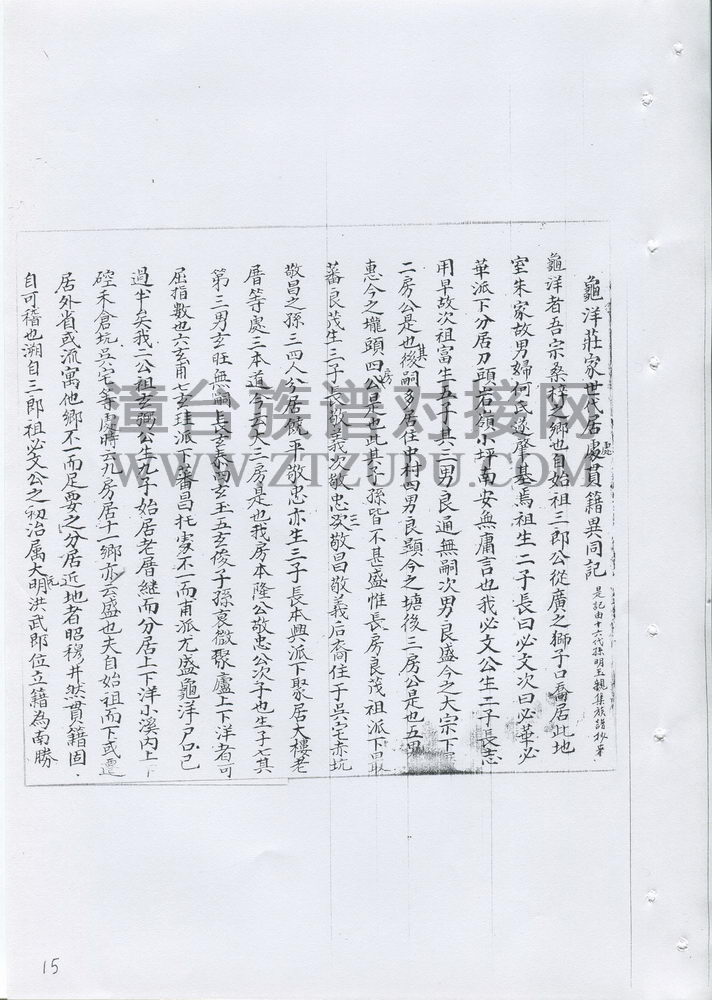 龜洋莊家世代居處貫籍異同記
是記由十六代孫明玉親集族譜抄筆
龜洋者吾宗桑梓之鄉也自始祖三郎公從廣之獅子口喬居此地
室朱家故男婦何氏遂肇基焉祖生二子長曰必文次曰必華必
華派下分居刀頭岩嶺小坪南安無庸言也我必文公生二子長志
用早故次祖富生五子其三男良通無嗣次男良盛今之大宗下
二房公是也後其嗣多居住中村四男良顯今之塘後三房公是也五男
惠今之壠頭四房公是也此其子孫皆不甚盛惟長房良茂祖派下最
蕃良茂生三子長敬義次敬忠三敬昌敬義后喬住于吳宅赤坑
敬昌之孫三四人分居饒平敬忠亦生三子長本興派下聚居大樓老
厝等處三本道今云大三房是也我房本隆公敬忠公次子也生子七其
第三男玄旺無嗣長玄泰四玄玉五玄俊子孫衰微聚廬上下洋者可
屈指數也六玄甫七玄珪派下蕃昌托處不一而甫派尤盛龜洋戶口已
過半矣我二公祖玄弼公生九子始居老厝繼而分居上下洋小溪內上下
硿禾倉坑吳宅等處時云九房居十一鄉亦云盛也夫自始祖而下或遷
居外省或流寓他鄉不一而足要之分居近地者昭穆井然貫籍固
自可稽也溯自三郎祖必文公之初治属元大明洪武即位立籍為南勝
漳台族谱对接网
WWW.ZTZUPU.COM
15